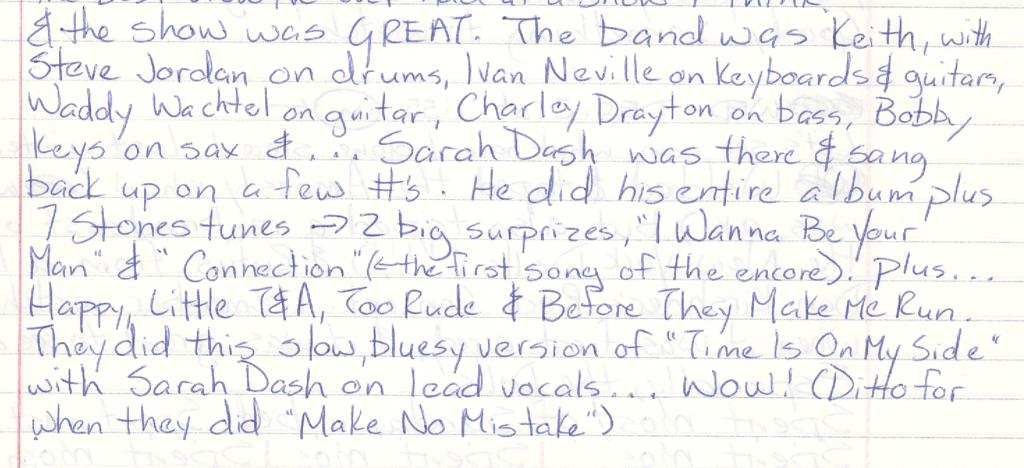 & the show was GREAT. The band was Keith, with
Steve Jordan on drums, Ivan Neville on keyboards & guitars,
Waddy Wachtel on guitar, Charley Drayton on bass, Bobby
Keys on sax & . . . Sarah Dash was there & sang
back up on a few #'s. He did his entire album plus
7 Stones tunes → 2 big surprizes, "I Wanna Be Your
Man" & "Connection" (← the first song of the encore). Plus...
Happy, Little T&A, Too Rude & Before They Make Me Run.
They did this slow, bluesy version of "Time Is On My Side"
with Sarah Dash on lead vocals... Wow! (Ditto for
when they did "Make No Mistake")